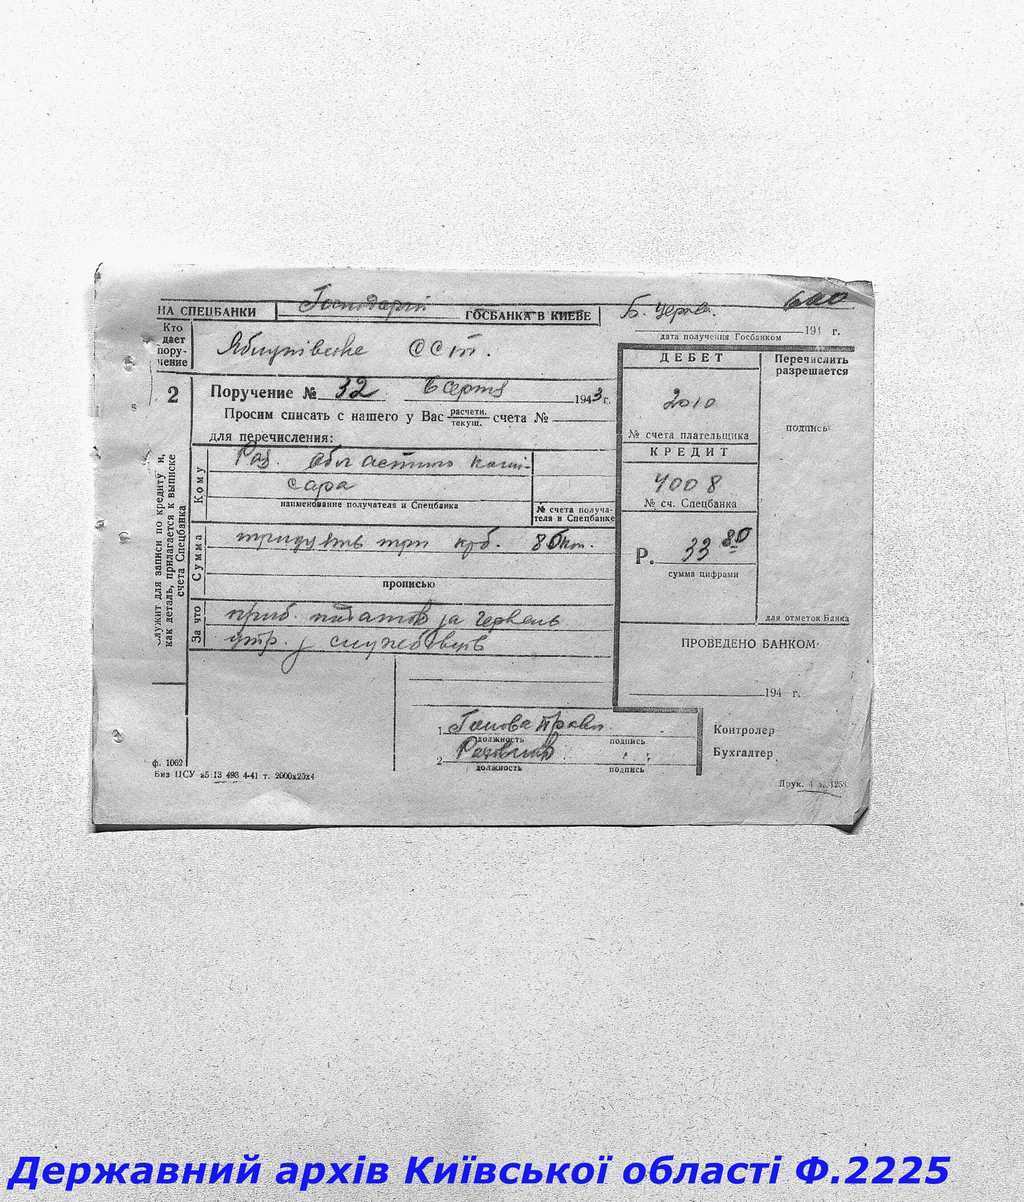 НА СПЕЦБАНКИ Господарчий ГОСБАНКА В КИЕВЕ Б. Церква.
194 г.
дата получения Госбанком
Кто дает пору-чение
Яблунівське ССТ.
2
Поручение № 32 6 серпня 1943 г.
Просим списать с нашего у Вас расчетн. текущ. счета №
для перечисления:
Кому
Рах. Обласного комі-
сара
наименование получателя и Спецбанка
№ счета получа-теля в Спецбанке
Сумма
тридцять три крб. 80 коп.
прописью
За что
приб. податок за червень
утр. з службовців
служит для записи по кредиту и, как деталь, прилагается к выписке счета Спецбанка
ДЕБЕТ
2010
№ счета плательщика
КРЕДИТ
4008
№ сч. Спецбанка
Р. 33 80
сумма цифрами
Перечислить разрешается
подпись
для отметок Банка
ПРОВЕДЕНО БАНКОМ
194 г.
1 Голова Правл.
должность подпись
2 Рахівник
должность подпись
Контролер
Бухгалтер
ф. 1062
Биз ЦСУ 493 4-41 т. 2000х20х4
Друк.
Державний архів Київської області Ф.2225